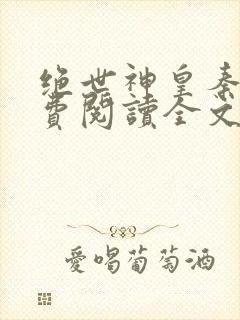 绝世神皇秦
費閱讀全文
愛喝葡萄酒